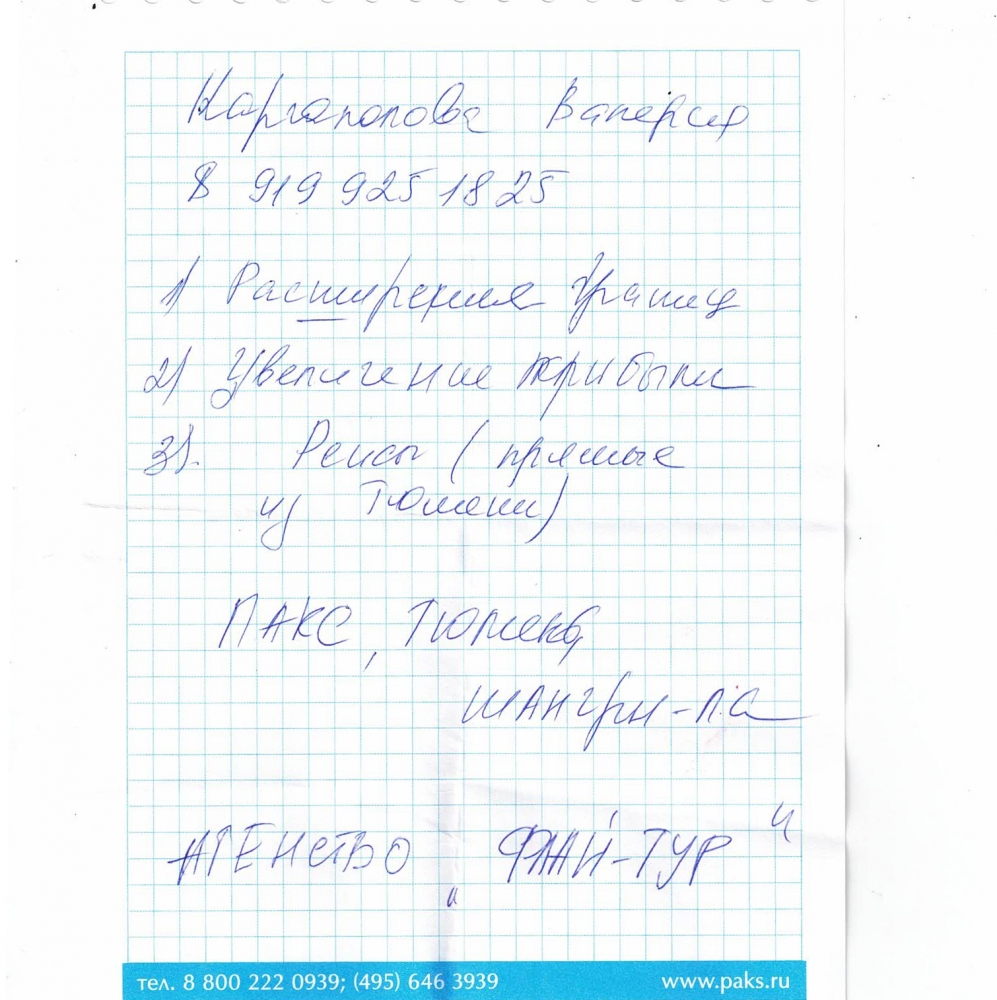 Каргаполова Валерия
8 919 925 18 25
1) Расширения границ
2) Увеличение прибыли
3). Рейсы (прямые
из Тюмени)
ПАКС, Тюмень,
ШАНгри-ла
АГЕНСТВО „ ФЛАЙ-ТУР "
тел. 8 800 222 0939; (495) 646 3939 www.paks.ru